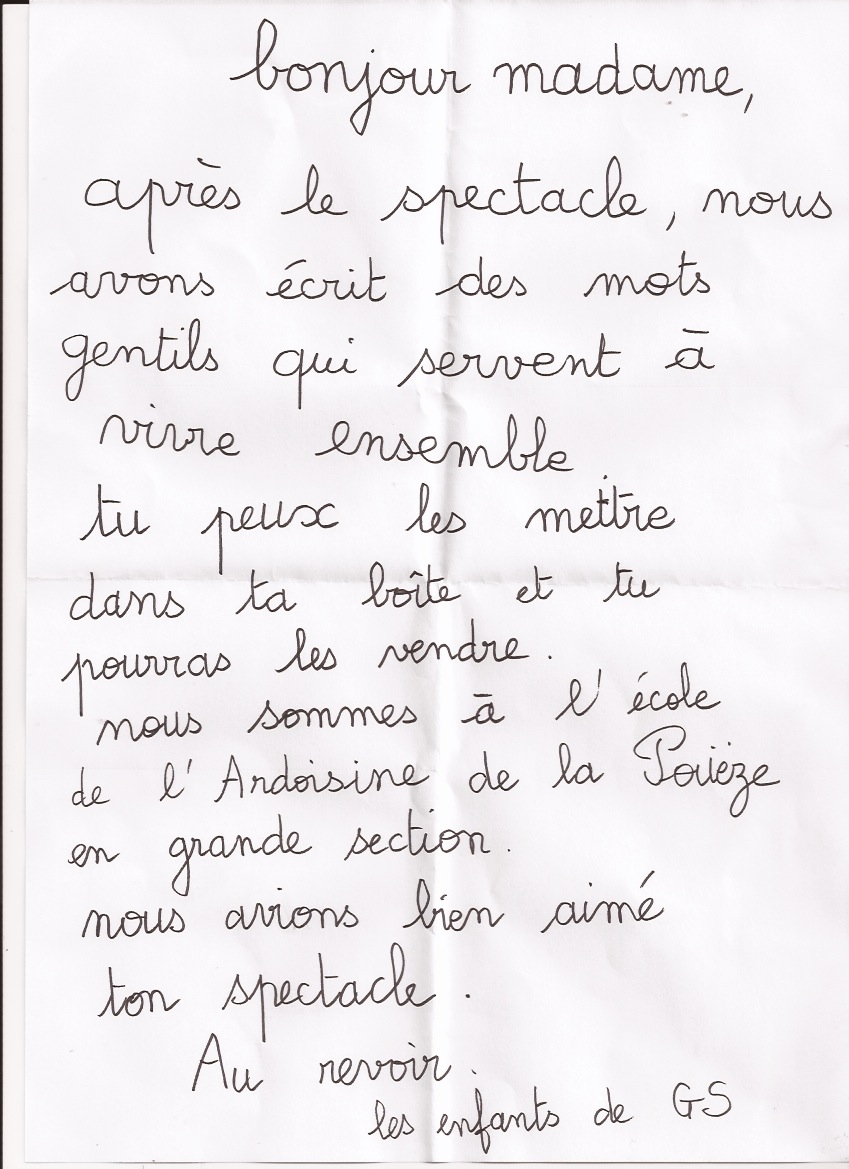 bonjour madame,
après le spectacle, nous
avons écrit des mots
gentils qui servent à
vivre ensemble.
tu peux les mettre
dans ta boîte et tu
pourras les vendre.
nous sommes à l'école
de l'Ardoisine de la Pouëze
en grande section.
nous avions bien aimé
ton spectacle.
Au revoir.
les enfants de GS